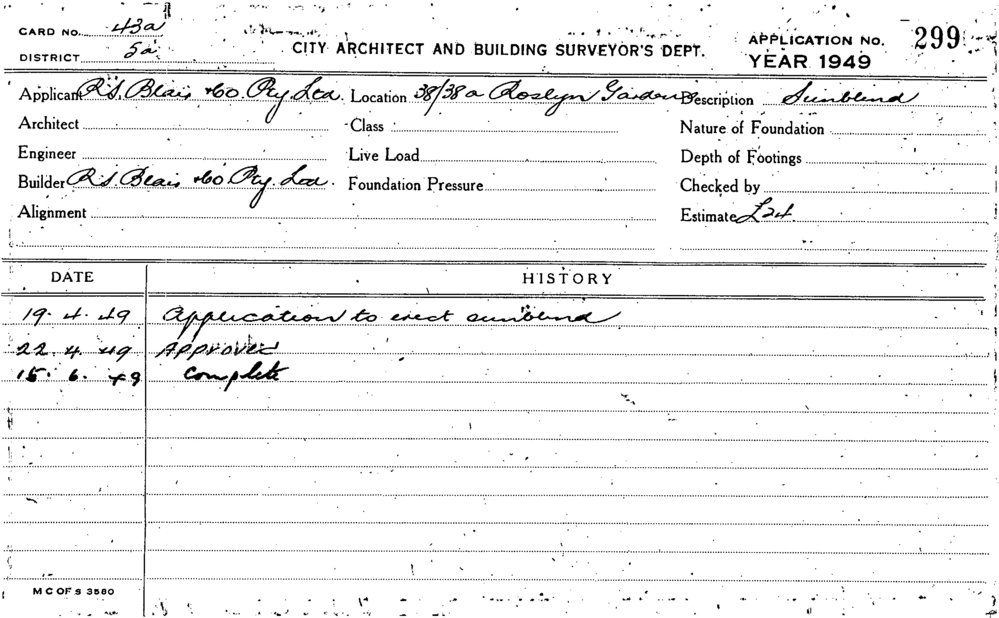 CARD NO. 43a
DISTRICT 5a
CITY ARCHITECT AND BUILDING SURVEYOR'S DEPT.
APPLICATION NO. 299
YEAR 1949
Applicant R.S. Blair & Co. Pty. Ltd. Location 38/38a Roslyn Gardens Description Sunblind
Architect Class Nature of Foundation
Engineer Live Load Depth of Footings
Builder R.S. Blair & Co. Pty. Ltd. Foundation Pressure Checked by
Alignment Estimate £24
DATE HISTORY
19. 4. 49 Application to erect sunblind
22. 4. 49 APPROVED
15. 6. 49 Complete
M C OF S 3580